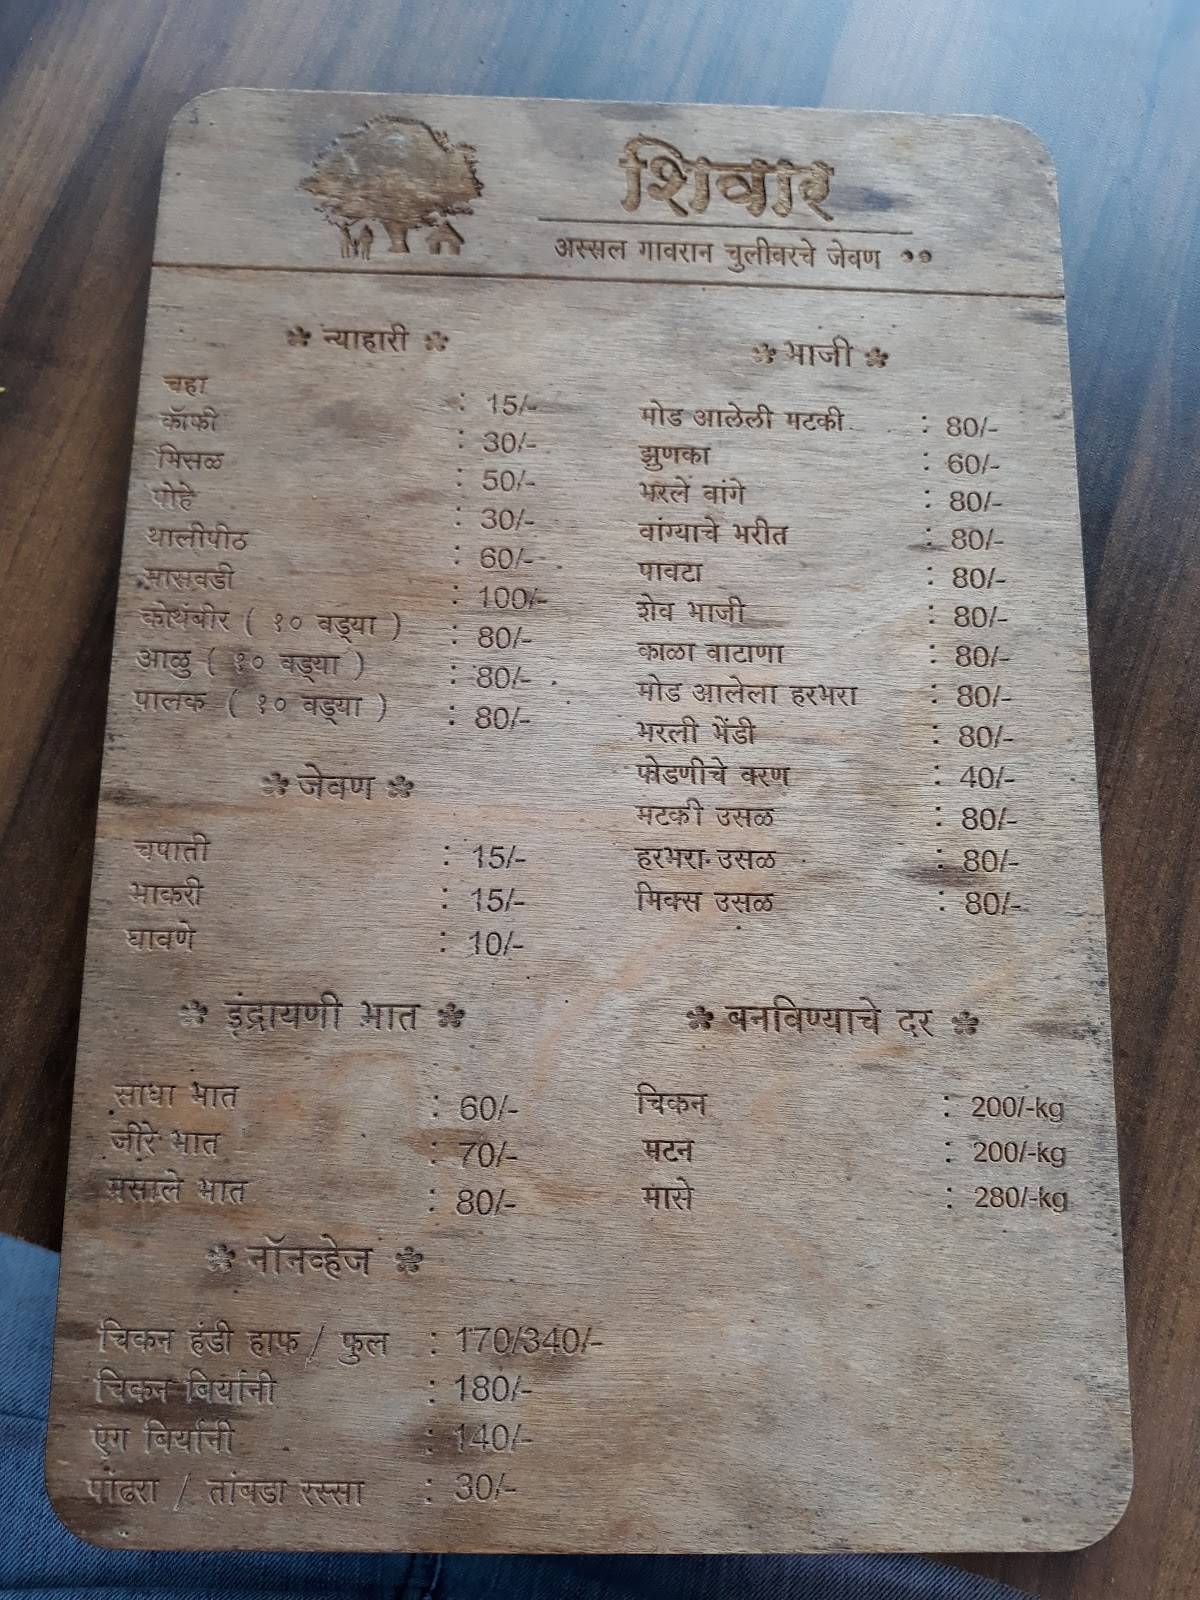 शिवार
अस्सल गावरान चुलीवरचे जेवण
न्याहारी
चहा : 15/-
कॉफी : 30/-
मिसळ : 50/-
पोहे : 30/-
थालीपीठ : 60/-
मासवडी : 100/-
कोथंबीर ( १० वड्या ) : 80/-
आळु ( १० वड्या ) : 80/-
पालक ( १० वड्या ) : 80/-
जेवण
चपाती : 15/-
भाकरी : 15/-
घावणे : 10/-
इंद्रायणी भात
साधा भात : 60/-
जीरे भात : 70/-
मसाले भात : 80/-
नॉनव्हेज
चिकन हंडी हाफ / फुल : 170/340/-
चिकन बिर्यानी : 180/-
एग बिर्यानी : 140/-
पांढरा / तांबडा रस्सा : 30/-
भाजी
मोड आलेली मटकी : 80/-
झुणका : 60/-
भरले वांगे : 80/-
वांग्याचे भरीत : 80/-
पावटा : 80/-
शेव भाजी : 80/-
काळा वाटाणा : 80/-
मोड आलेला हरभरा : 80/-
भरली भेंडी : 80/-
फोडणीचे वरण : 40/-
मटकी उसळ : 80/-
हरभरा उसळ : 80/-
मिक्स उसळ : 80/-
बनविण्याचे दर
चिकन : 200/-kg
मटन : 200/-kg
मासे : 280/-kg